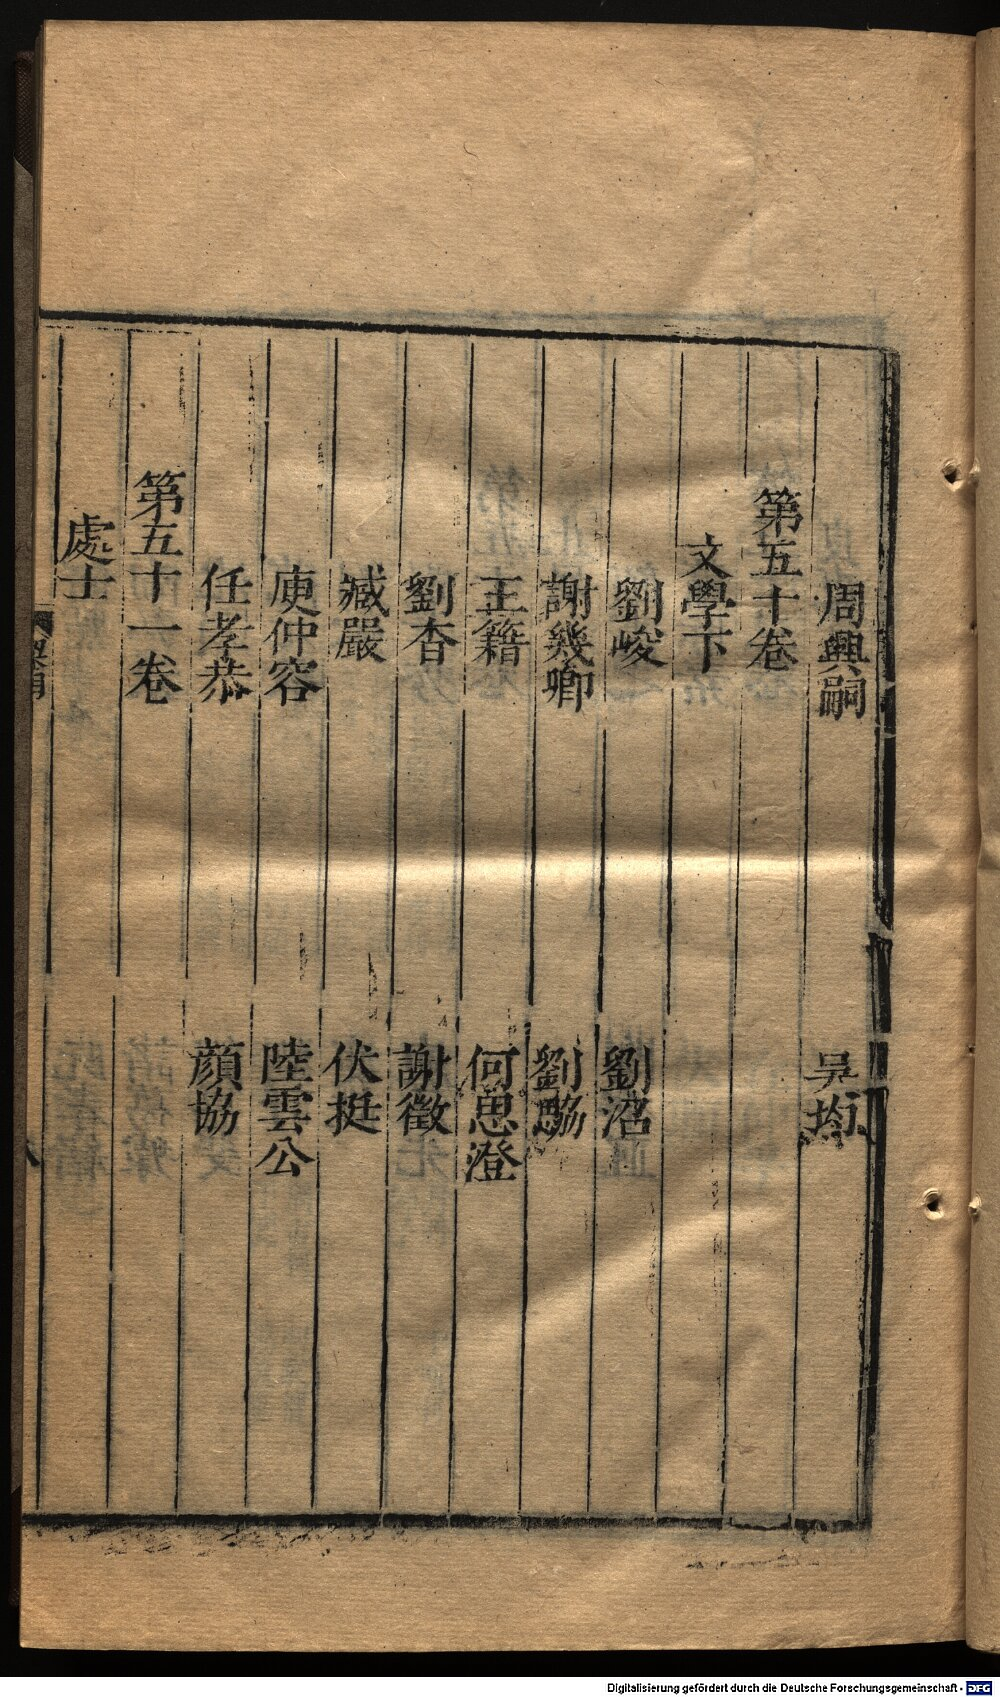 周興嗣 吳均
第五十卷
文學下
劉峻 劉沼
謝幾卿 劉勰
王籍 何思澄
劉杳 謝徵
臧嚴 伏挺
庾仲容 陸雲公
任孝恭 顔協
第五十一卷
處士
Digitalisierung gefördert durch die Deutsche Forschungsgemeinschaft - DFG